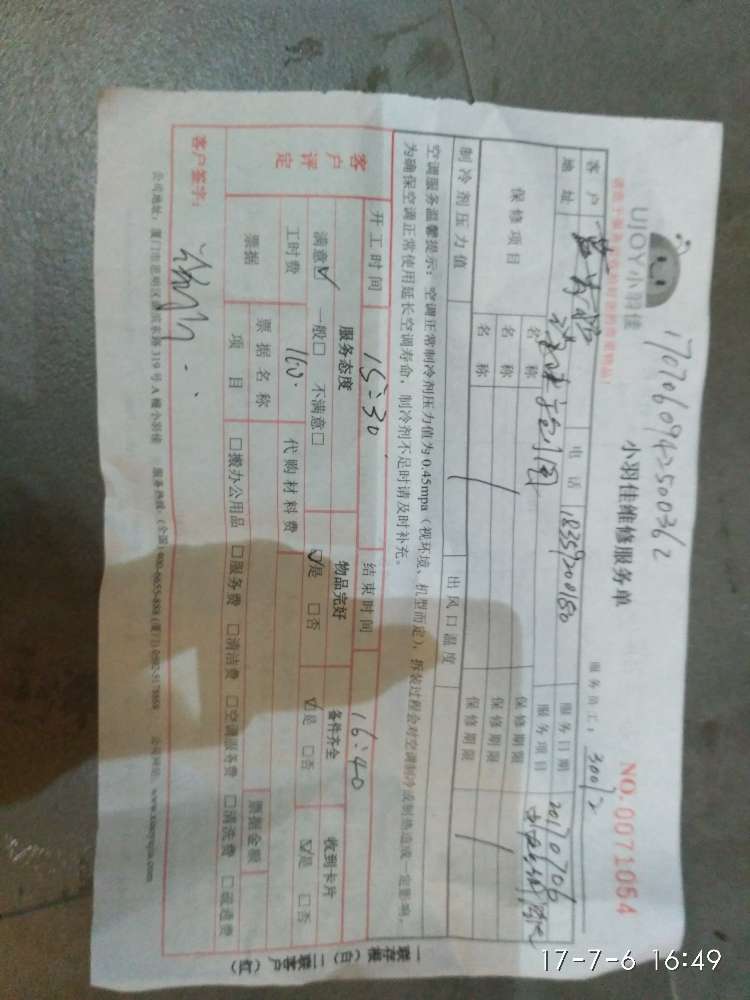 1707060942500362
UJOY小羽佳
小羽佳维修服务单
NO.0071054
服务员工:30012
客户
电话 18359200180
服务日期 20170706
地址
服务项目
保修项目
名称
保修期限
名称
保修期限
名称
保修期限
制冷剂压力值
出风口温度
空调服务温馨提示:空调正常制冷剂压力值为0.45mpa(视环境、机型而定),拆装过程会对空调制冷或制热造成一定影响,
为确保空调正常使用延长空调寿命,制冷剂不足时请及时补充。
开工时间 15:30
结束时间 16:40
客户评定
服务态度
物品完好
备件齐全
收到卡片
满意☑ 一般□ 不满意□
☑是 □否
☑是 □否
☑是 □否
工时费 160.
代购材料费
票据
票据名称
票据金额
项目
□搬办公用品 □服务费 □清洁费 □空调服务费 □清洗费 □疏通费
客户签字:
319号A幢小羽佳
一联存根(白)二联客户(红)
17-7-6 16:49